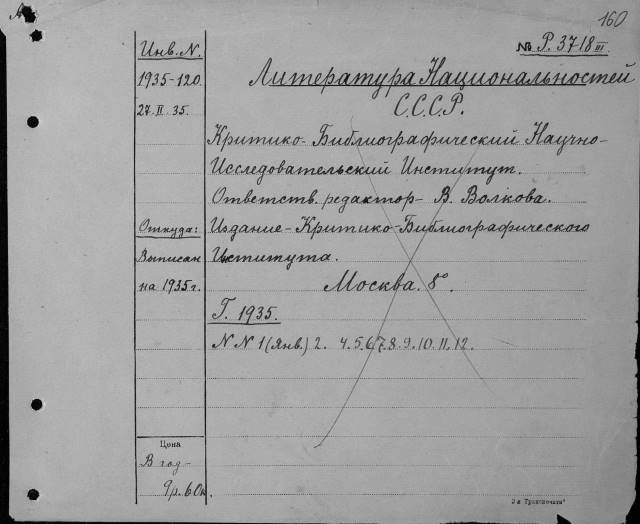 160
№ Р. 3718 III
Инв. N.
1935-120
27. II. 35.
Литература Национальностей
С.С.С.Р.
Критико-Библиографический Научно-
Исследовательский Институт.
Ответств. редактор - В. Волкова.
Откуда:
Издание - Критико-Библиографического
Выписан
Института.
на 1935 г.
Москва. 8°.
Г. 1935.
N N 1 (Янв.) 2. 4. 5. 6. 7. 8. 9. 10. 11. 12.
Цена
В год -
9 р. 60 к.